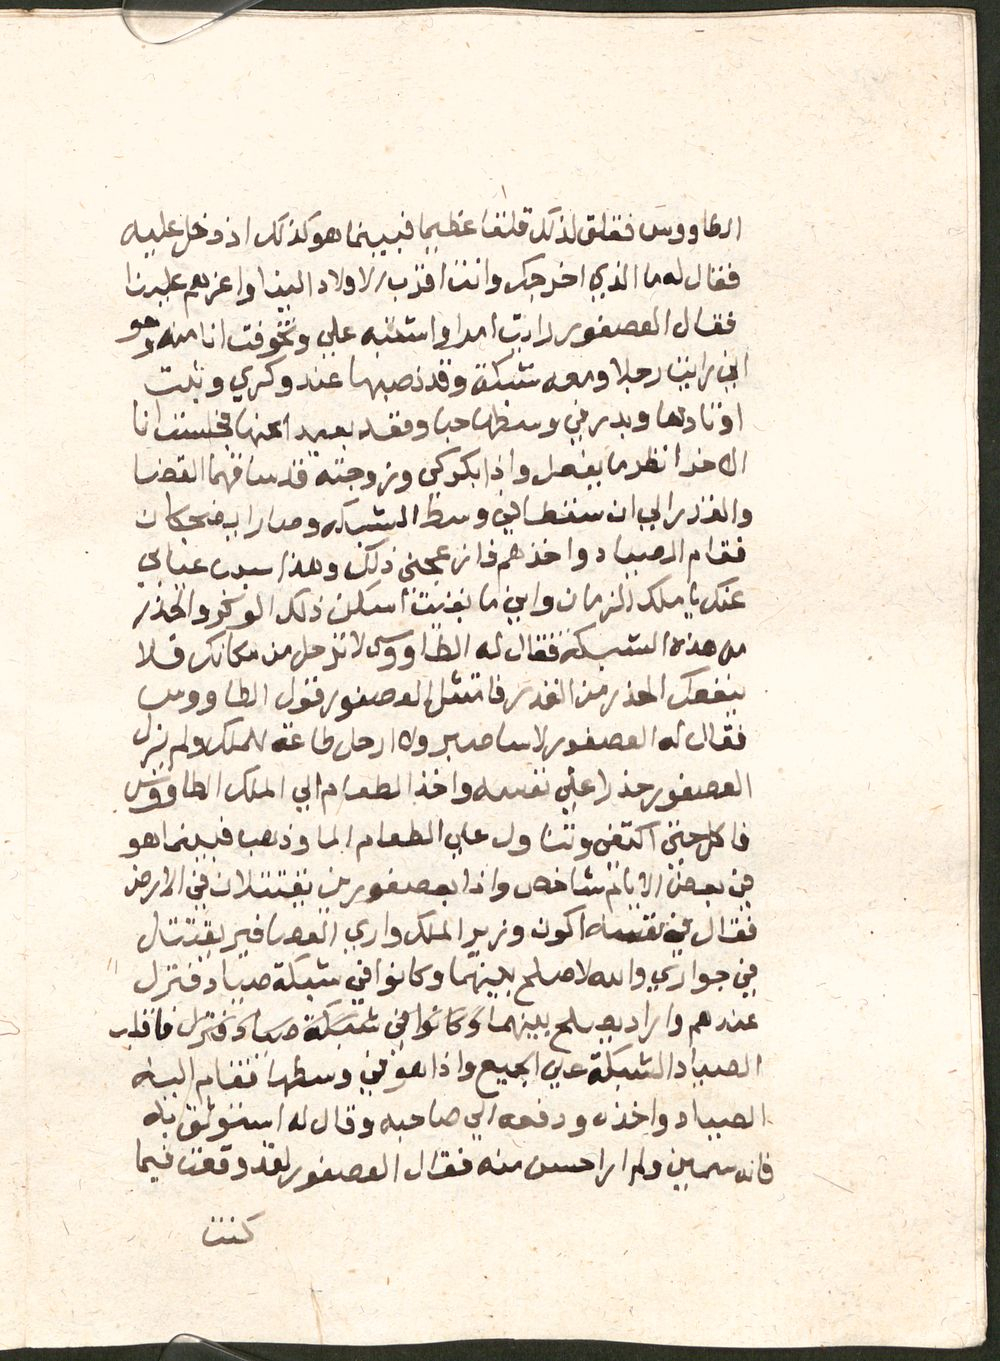 الطاووس فقلق لذلك قلقا عظيما فبينما هو كذلك اذ دخل عليه
فقال له ما الذي اخرجك وانت اقرب الاولاد الينا واعزهم علينا
فقال العصفور رايت امرا واشتبه علي وتخوفت انا منه وهو
اني رايت رجلا ومعه شبكة وقد نصبها عند وكري وثبت
اوتادها وبدر في وسطها حبا وقعد بعيد عنها فجلست انا
الاخر انظر ما يفعل واذا بكركي وزوجته قد ساقهما القضا
والقدر الي ان سقطا في وسط الشبكه وصارا يضحكان
فقام الصياد واخذهم فازعجني ذلك وهذا سبب غيابي
عنك يا ملك الزمان واني ما بقيت اسكن ذلك الوكر والحذر
من هذه الشبكة فقال له الطاووس لا ترحل من مكانك فلا
ينفعك الحذر من القدر فامتثل العصفور قول الطاووس
فقال له العصفور لا ساصبر ولا ارحل طاعة للملك ولم يزل
العصفور حذرا علي نفسه واخذ الطعام الي الملك الطاووس
فاكل حتي اكتفي وتناول علي الطعام الما وذهب فبينما هو
في بعض الايام شاخص واذا بعصفورين يقتتلان في الارض
فقال في نفسه اكون وزير الملك واري العصافير يقتتال
في جواري والله لاصلح بينهما وكانوا في شبكة صياد فنزل
عندهم واراد يصلح بينهما وكانوا في شبكة صياد فنزل فاقلب
الصياد الشبكة علي الجميع واذا هو في وسطها فقام اليه
الصياد واخذه ودفعه الي صاحبه وقال له استوثق به
فانه سمين ولم ار احسن منه فقال العصفور لقد وقعت فيما
كنت